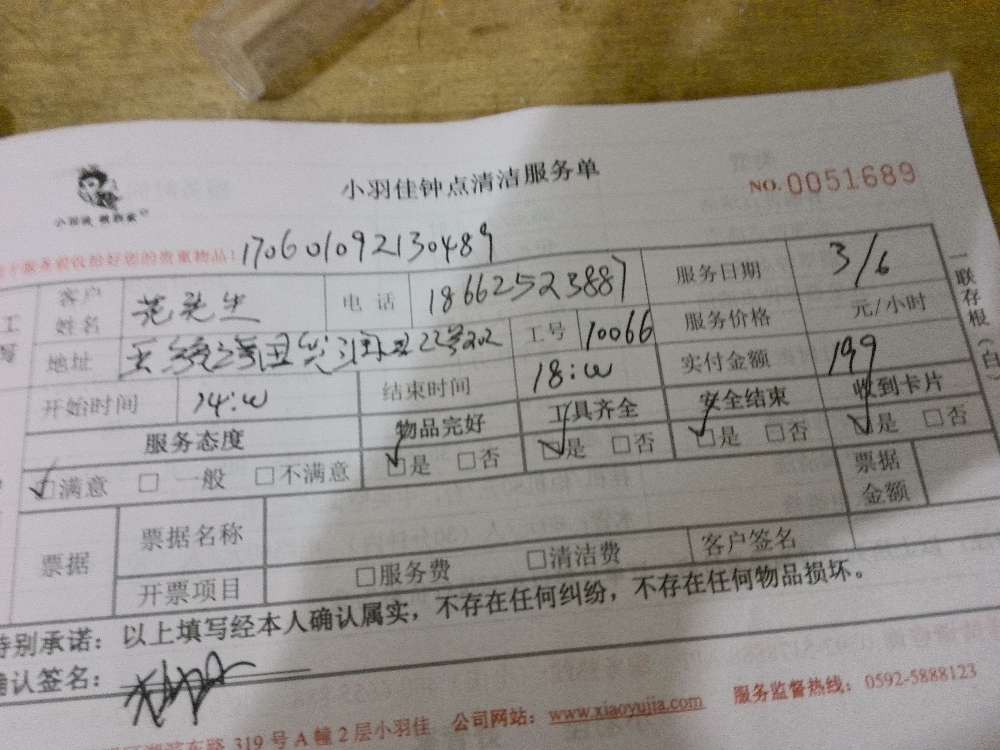 小羽佳钟点清洁服务单
NO.0051689
小羽佳 微管家
服务前收拾好您的贵重物品! 170601092130489
客户姓名 范先生 电话 18662523887 服务日期 3/6
地址 22号202 工号 10066 服务价格 元/小时
开始时间 14:00 结束时间 18:00 实付金额 199
服务态度 物品完好 工具齐全 安全结束 收到卡片
☑满意 □一般 □不满意 ☑是 □否 ☑是 □否 ☑是 □否 ☑是 □否
票据 票据名称 票据金额
开票项目 □服务费 □清洁费 客户签名
特别承诺：以上填写经本人确认属实，不存在任何纠纷，不存在任何物品损坏。
确认签名：
东路 319 号 A 幢 2 层小羽佳 公司网站：www.xiaoyujia.com 服务监督热线：0592-5888123
一联存根（白）